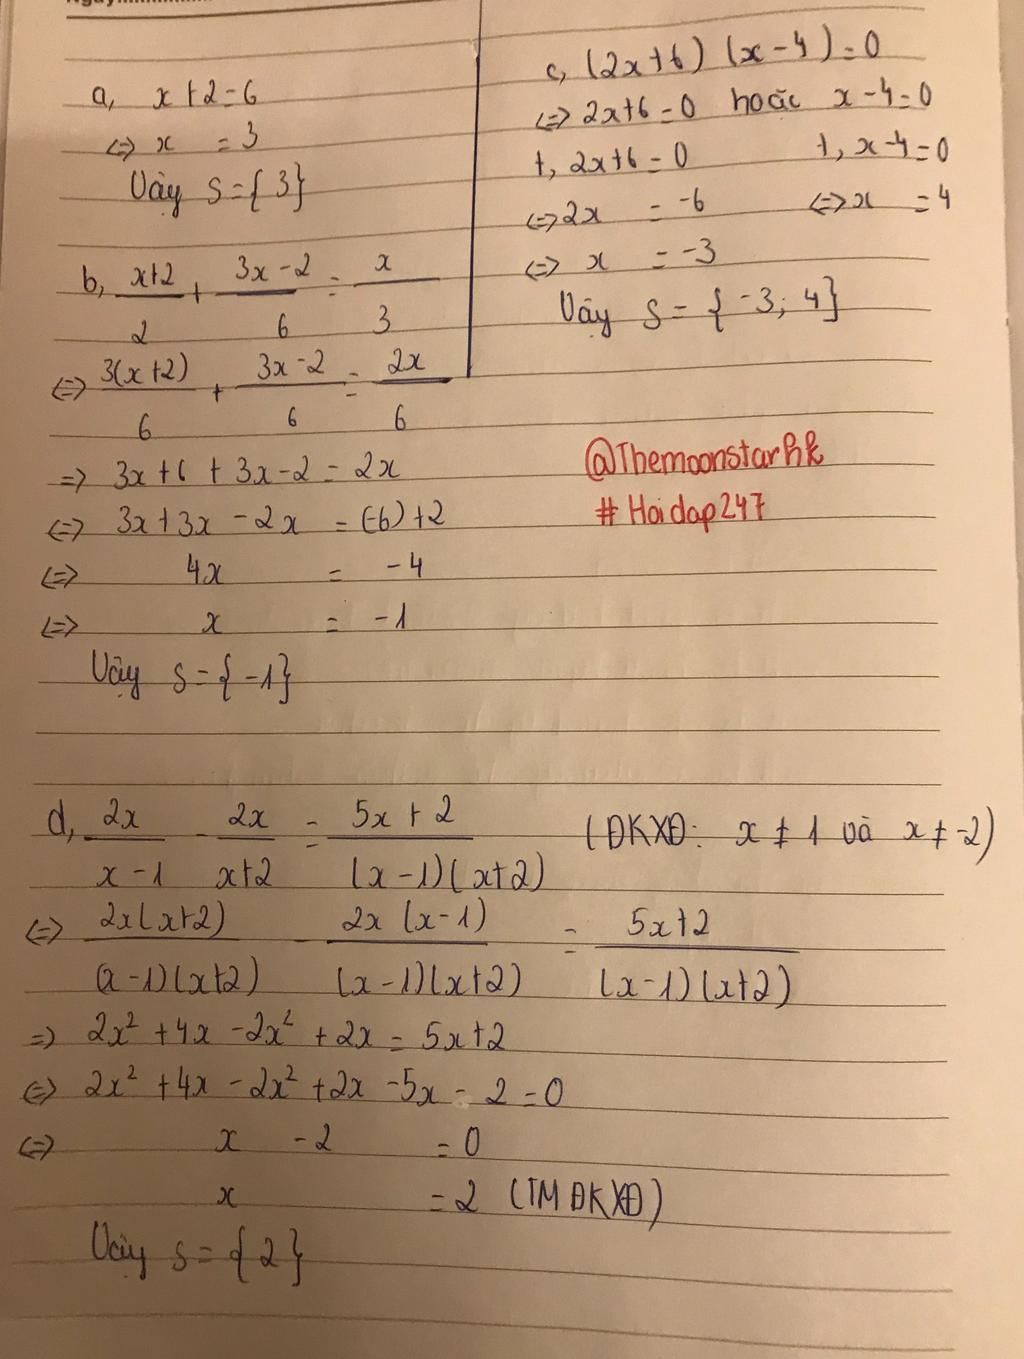 a, x + 2 = 6
<=> x = 3
Vậy S = { 3 }
b, x+2/2 + 3x-2/6 = x/3
<=> 3(x+2)/6 + 3x-2/6 = 2x/6
=> 3x + 6 + 3x - 2 = 2x
<=> 3x + 3x - 2x = (-6) + 2
<=> 4x = -4
<=> x = -1
Vậy S = { -1 }
c, (2x+6) (x-4) = 0
<=> 2x+6 = 0 hoặc x-4 = 0
+, 2x+6 = 0 +, x-4 = 0
<=> 2x = -6 <=> x = 4
<=> x = -3
Vậy S = { -3; 4 }
@Themoonstarhk
# Hoidap247
d, 2x/x-1 - 2x/x+2 = 5x+2/(x-1)(x+2) (ĐKXĐ: x ≠ 1 và x ≠ -2)
<=> 2x(x+2)/(x-1)(x+2) - 2x(x-1)/(x-1)(x+2) = 5x+2/(x-1)(x+2)
=> 2x² + 4x - 2x² + 2x = 5x+2
<=> 2x² + 4x - 2x² + 2x - 5x - 2 = 0
<=> x - 2 = 0
x = 2 (TM ĐKXĐ)
Vậy S = { 2 }